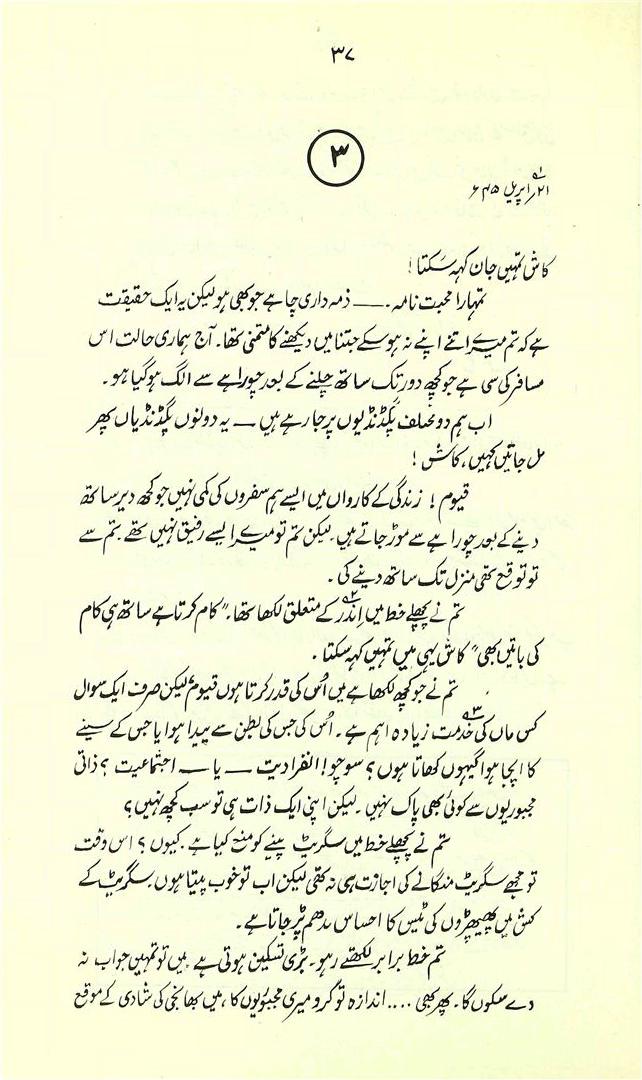 ۳۷
۳
۵۱
۲۱؍ اپریل ۴۵ ء
کاش تمہیں جان کہہ سکتا!
تمہارا محبت نامہ۔ —— ذمہ داری چاہے جو کبھی ہو لیکن یہ ایک حقیقت
ہے کہ تم میرے اتنے اپنے نہ ہو سکے جتنا میں دیکھنے کا متمنی تھا۔ آج ہماری حالت اس
مسافر کی سی ہے جو کچھ دور تک ساتھ چلنے کے بعد چوراہے سے الگ ہو گیا ہو۔
اب ہم دو مختلف پگڈنڈیوں پر جا رہے ہیں — یہ دونوں پگڈنڈیاں پھر
مل جائیں کہیں، کاش!
قیوم! زندگی کے کارواں میں ایسے ہم سفروں کی کمی نہیں جو کچھ دیر ساتھ
دینے کے بعد چوراہے سے موڑ جاتے ہیں۔ لیکن تم تو میرے ایسے رفیق نہیں تھے۔ تم سے
تو توقع تھی منزل تک ساتھ دینے کی۔
تم نے پچھلے خط میں اِندر۵۲ کے متعلق لکھا تھا۔ "کام کرتا ہے ساتھ ہی کام
کی باتیں بھی" کاش یہی میں تمہیں کہہ سکتا۔
تم نے جو کچھ لکھا ہے میں اُس کی قدر کرتا ہوں قیوم! لیکن صرف ایک سوال
کس ماں کی خدمت۵۳ زیادہ اہم ہے۔ اُس کی جس کی بطن سے پیدا ہوا یا جس کے سینے
کا اپجا ہوا گیہوں کھاتا ہوں؟ سوچو! انفرادیت — یا — اجتماعیت؟ ذاتی
مجبوریوں سے کوئی بھی پاک نہیں۔ لیکن اپنی ایک ذات ہی تو سب کچھ نہیں؟
تم نے پچھلے خط میں سگریٹ پینے کو منع کیا ہے۔ کیوں؟ اس وقت
تو مجھے سگریٹ منگانے کی اجازت ہی نہ تھی لیکن اب تو خوب پیتا ہوں۔ سگریٹ کے
کش میں پھیپھڑوں کی ٹیس کا احساس مدھم پڑ جاتا ہے۔
تم خط برابر لکھتے رہو۔ بڑی تسکین ہوتی ہے میں تو تمہیں جواب نہ
دے سکوں گا۔ پھر بھی .... اندازہ تو کرو میری مجبوریوں کا، میں بھانجی کی شادی کے موقع